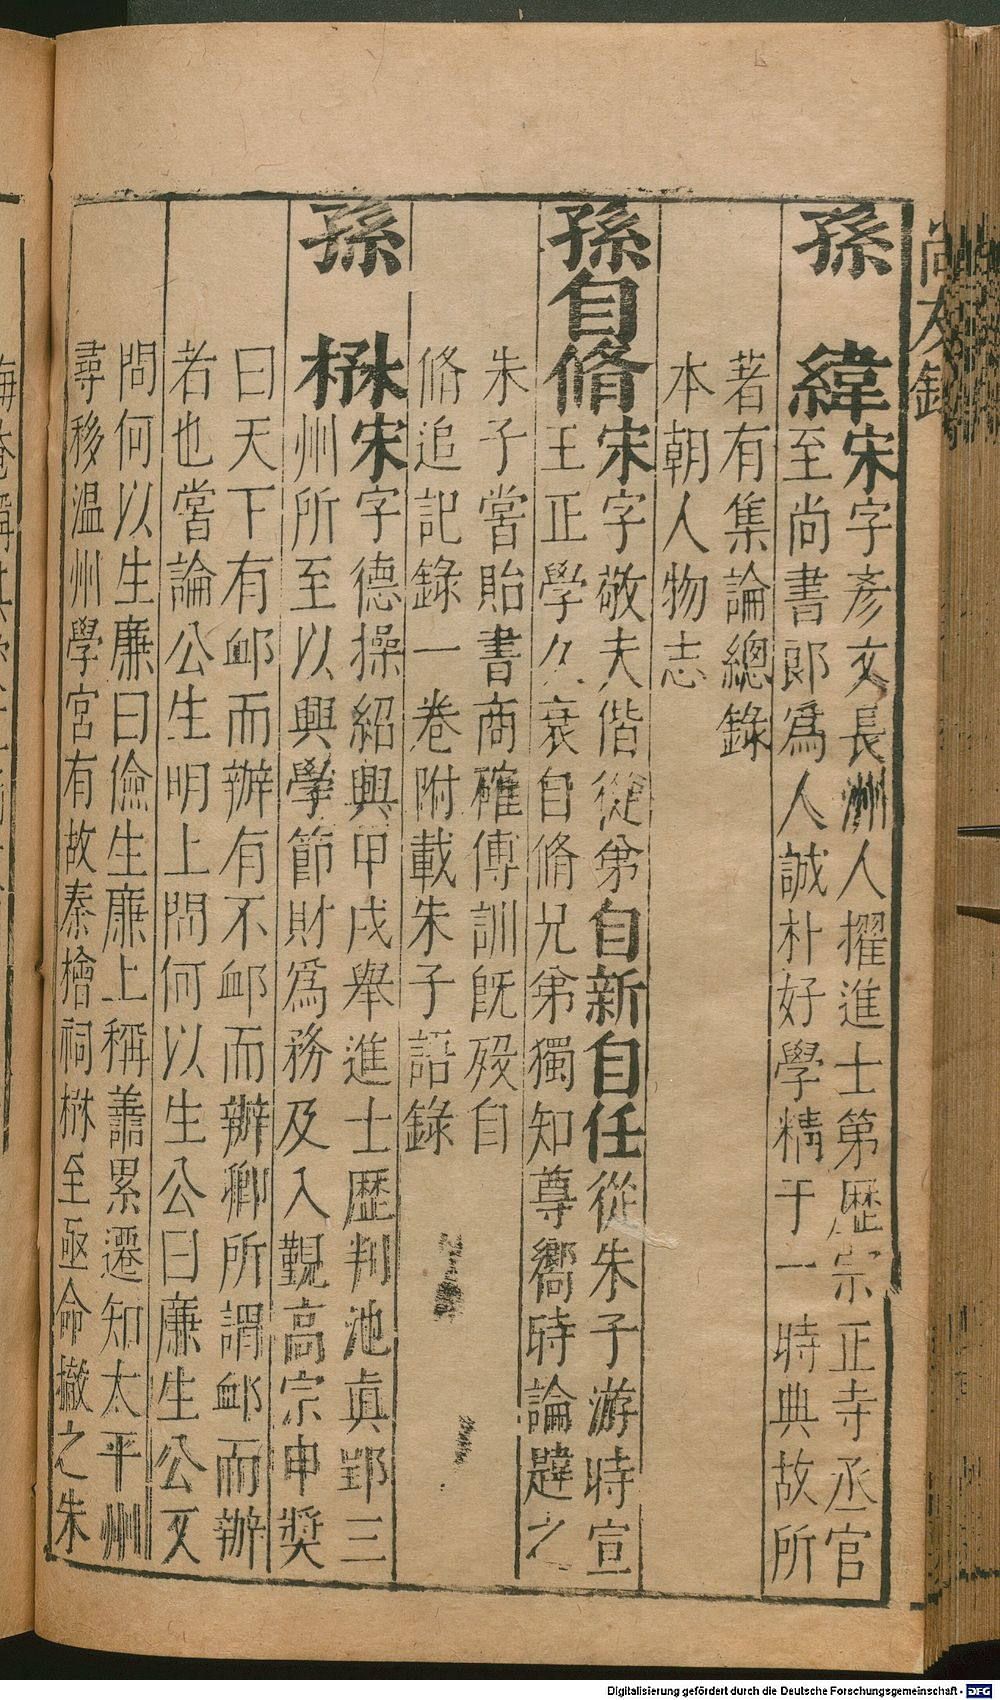 尚友錄
孫　緯宋字彥文長洲人擢進士第歷宗正寺丞官
至尚書郎爲人誠朴好學精于一時典故所
著有集論總錄
本朝人物志
孫自脩宋字敬夫偕從弟自新自任從朱子游時宣
王正學久衰自脩兄弟獨知尊嚮時論韙之
朱子嘗貽書商確傅訓旣歿自
脩追記錄一卷附載朱子語錄
孫　楙宋字德操紹興甲戌舉進士歷判池眞郢三
州所至以興學節財爲務及入覲高宗申奬
曰天下有䘏而辦有不䘏而辦卿所謂䘏而辦
者也嘗論公生明上問何以生公曰廉生公又
問何以生廉曰儉生廉上稱善累遷知太平州
尋移温州學宮有故秦檜祠楙至亟命撤之朱
Digitalisierung gefördert durch die Deutsche Forschungsgemeinschaft - DFG